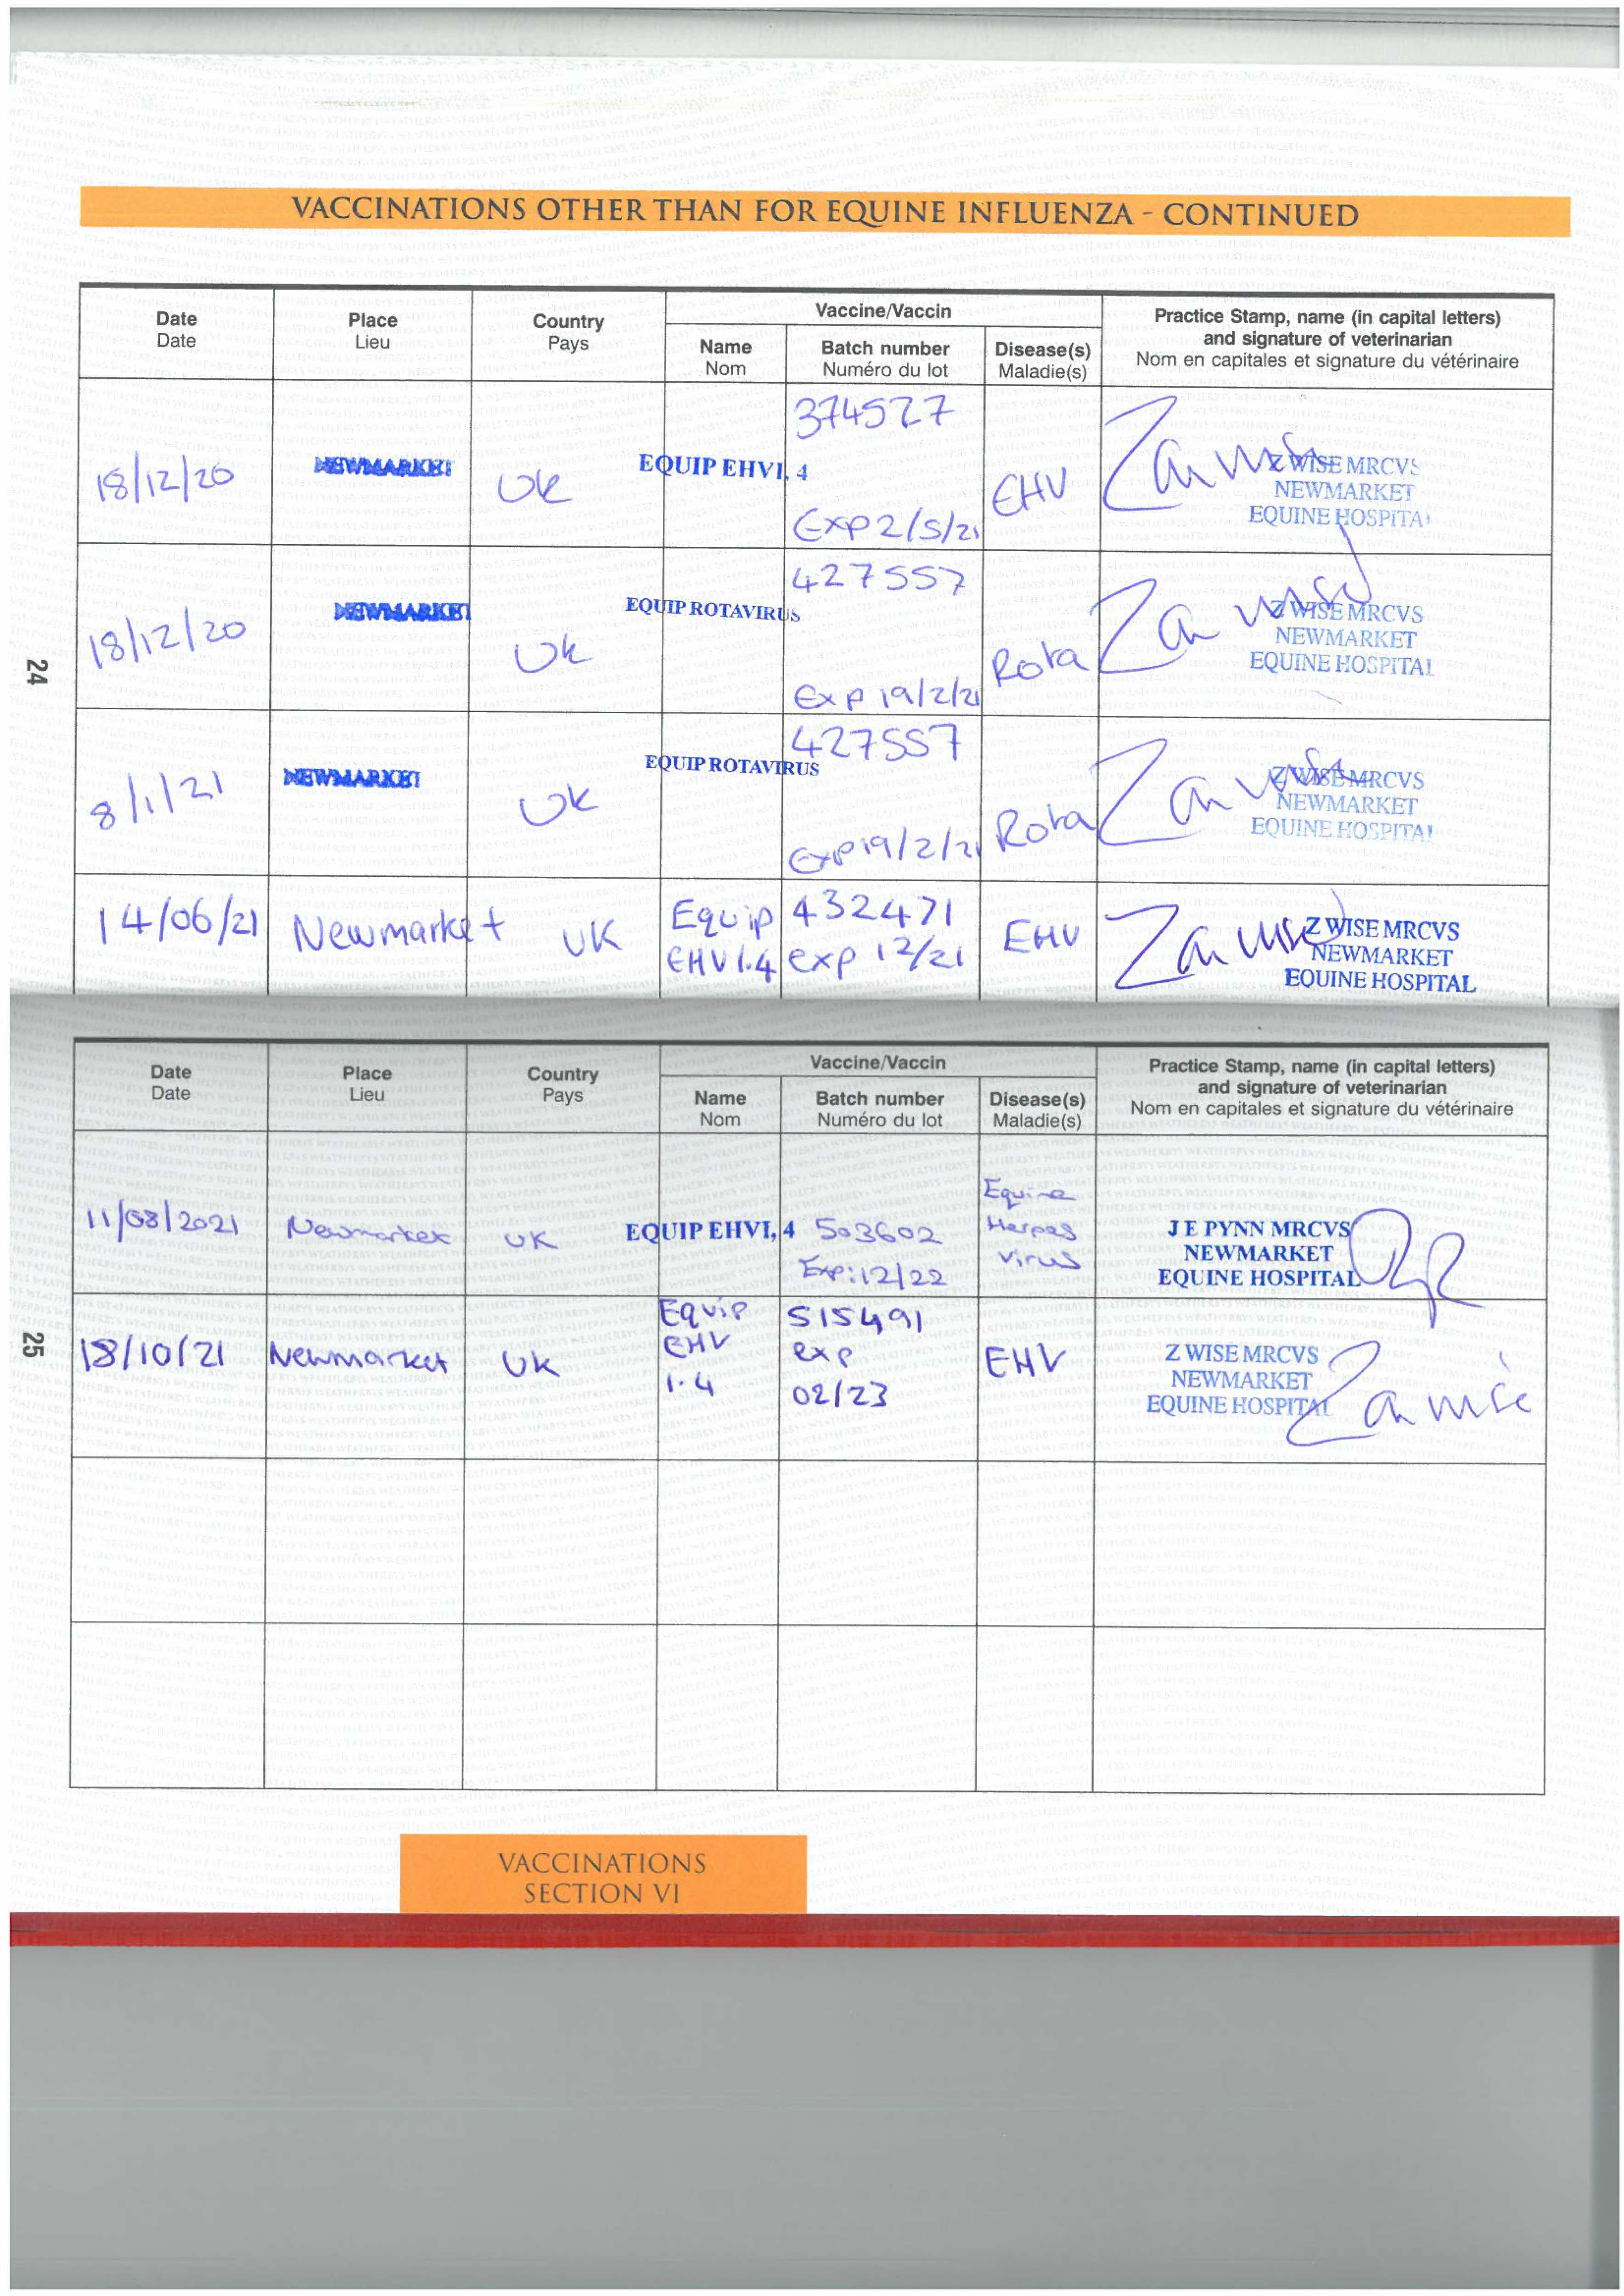 VACCINATIONS OTHER THAN FOR EQUINE INFLUENZA - CONTINUED
Date
Date
Place
Lieu
Country
Pays
Vaccine/Vaccin
Name
Nom
Batch number
Numéro du lot
Disease(s)
Maladie(s)
Practice Stamp, name (in capital letters)
and signature of veterinarian
Nom en capitales et signature du vétérinaire
18/12/20
NEWMARKET
UK
EQUIP EHV1, 4
374527
Exp 2/5/21
EHV
Z WISE MRCVS
NEWMARKET
EQUINE HOSPITAL
18/12/20
NEWMARKET
UK
EQUIP ROTAVIRUS
427557
Exp 19/2/21
Rota
Z WISE MRCVS
NEWMARKET
EQUINE HOSPITAL
8/1/21
NEWMARKET
UK
EQUIP ROTAVIRUS
427557
Exp 19/2/21
Rota
Z WISE MRCVS
NEWMARKET
EQUINE HOSPITAL
14/06/21
Newmarket
UK
Equip
EHV 1.4
432471
exp 12/21
EHV
Z WISE MRCVS
NEWMARKET
EQUINE HOSPITAL
24
Date
Date
Place
Lieu
Country
Pays
Vaccine/Vaccin
Name
Nom
Batch number
Numéro du lot
Disease(s)
Maladie(s)
Practice Stamp, name (in capital letters)
and signature of veterinarian
Nom en capitales et signature du vétérinaire
11/08/2021
Newmarket
UK
EQUIP EHV1, 4
503602
Exp: 12/22
Equine
Herpes
Virus
J E PYNN MRCVS
NEWMARKET
EQUINE HOSPITAL
18/10/21
Newmarket
UK
Equip
EHV
1.4
515491
exp
02/23
EHV
Z WISE MRCVS
NEWMARKET
EQUINE HOSPITAL
25
VACCINATIONS
SECTION VI